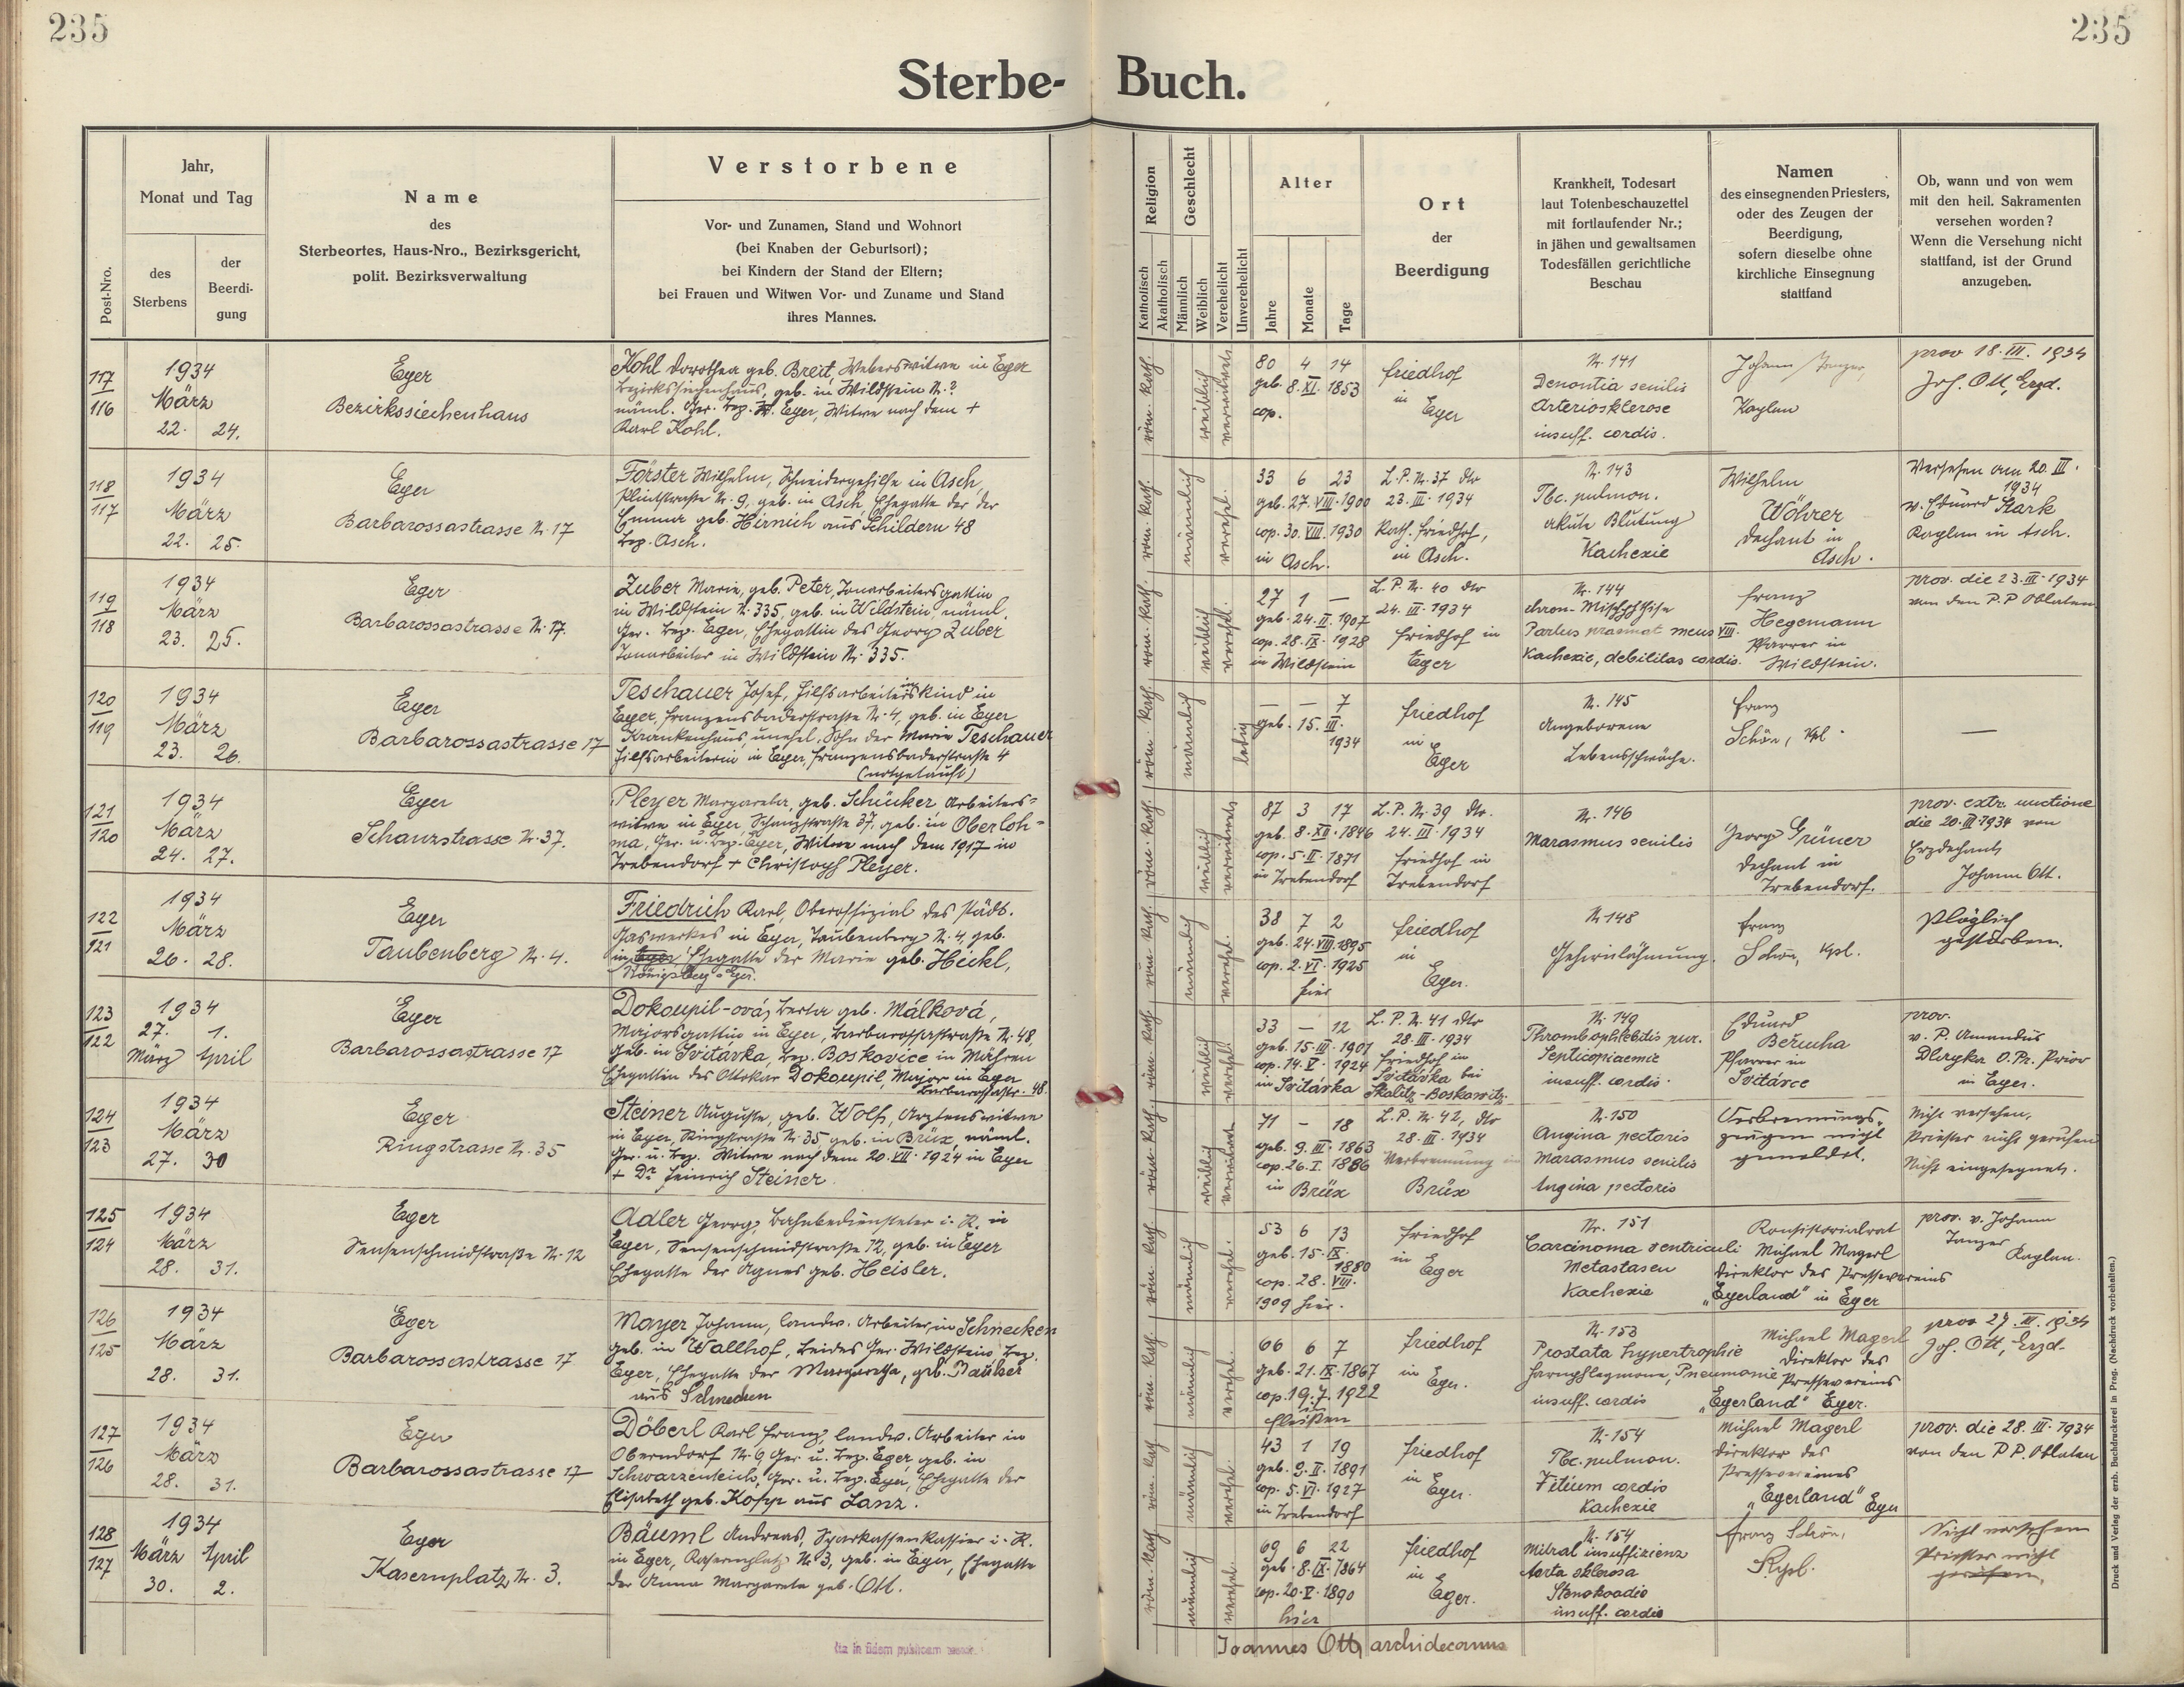 235
235
Sterbe- Buch.
Post-Nro.
Jahr,
Monat und Tag
des
Sterbens
der
Beerdi-
gung
Name
des
Sterbeortes, Haus-Nro., Bezirksgericht,
polit. Bezirksverwaltung
Verstorbene
Vor- und Zunamen, Stand und Wohnort
(bei Knaben der Geburtsort);
bei Kindern der Stand der Eltern;
bei Frauen und Witwen Vor- und Zuname und Stand
ihres Mannes.
Religion
Katholisch
Akatholisch
Geschlecht
Männlich
Weiblich
Verehelicht
Unverehelicht
Alter
Jahre
Monate
Tage
Ort
der
Beerdigung
Krankheit, Todesart
laut Totenbeschauzettel
mit fortlaufender Nr.;
in jähen und gewaltsamen
Todesfällen gerichtliche
Beschau
Namen
des einsegnenden Priesters,
oder des Zeugen der
Beerdigung,
sofern dieselbe ohne
kirchliche Einsegnung
stattfand
Ob, wann und von wem
mit den heil. Sakramenten
versehen worden?
Wenn die Versehung nicht
stattfand, ist der Grund
anzugeben.
117
116
1934
März
22. 24.
Eger
Bezirkssiechenhaus
Kohl Dorothea geb. Breit, Weberswitwe in Eger
Bezirkssiechenhaus, geb. in Wildstein N. ?
näml. Ger. Bez. Eger, Witwe nach dem +
Karl Kohl.
röm. kath.
weiblich
verwitwet
80 4 14
geb. 8. XI. 1853
cop.
Friedhof
in
Eger
N. 141
Dementia senilis
Arteriosklerose
insuff. cordis.
Johann Tanzer,
Kaplan
prov 18. III. 1934
Joh. Ott, Erzd.
118
117
1934
März
22. 25.
Eger
Barbarossastrasse N. 17
Förster Wilhelm, Schneidergehilfe in Asch,
N. 9, geb. in Asch, Ehegatte der der
Emma geb. Hirnich aus Schildern 48
Bez. Asch.
röm. kath.
männlich
verehel.
33 6 23
geb. 27. VIII. 1900
cop. 30. VIII. 1930
in Asch.
L. P. N. 37 dto
23. III. 1934
Kath. Friedhof,
in Asch.
N. 143
Tbc. pulmon.
akute Blutung
Kachexie
Wilhelm
Wöhrer
Dechant in
Asch.
Versehen am 20. III.
1934
v. Eduard Stark
Kaplan in Asch.
119
118
1934
März
23. 25.
Eger
Barbarossastrasse N. 17.
Zuber Marie, geb. Peter, Tonarbeitersgattin
in Wildstein N. 335, geb. in Wildstein, näml.
Ger. Bez. Eger, Ehegattin des Georg Zuber
Tonarbeiter in Wildstein N. 335.
röm. kath.
weiblich
verehel.
27 1 —
geb. 24. II. 1907
cop. 28. IX. 1928
in Wildstein
L. P. N. 40 dto
24. III. 1934
Friedhof in
Eger
Nr. 144
chron. Mischphthise
Partus praemat mens VIII.
Kachexie, debilitas cordis.
Franz
Hegemann
Pfarrer in
Wildstein.
prov. die 23. III. 1934
von den P. P. Oblaten
120
119
1934
März
23. 26.
Eger
Barbarossastrasse 17
Teschauer Josef, Hilfsarbeiterinskind in
Eger, Franzensbaderstraße N. 4, geb. in Eger
Krankenhaus, unehel. Sohn der Marie Teschauer
Hilfsarbeiterin in Eger, Franzensbaderstraße 4
(notgetauft)
röm. kath
männlich
ledig
— — 7
geb. 15. III.
1934
Friedhof
in
Eger
N. 145
Angeborene
Lebensschwäche.
Franz
Schön, Kpl.
—
121
120
1934
März
24. 27.
Eger
Schanzstrasse N. 37.
Pleyer Margaretha, geb. Schücker Arbeiters-
witwe in Eger, Schanzstraße 37, geb. in Oberloh-
ma, Ger. u. Bez. Eger, Witwe nach dem 1917 in
Trebendorf + Christoph Pleyer.
röm. kath.
weiblich
verwitwet
87 3 17
geb. 8. XII. 1846
cop. 5. II. 1871
in Trebendorf
L. P. N. 39 dto.
24. III. 1934
Friedhof in
Trebendorf
N. 146
Marasmus senilis
Georg Grüner
Dechant in
Trebendorf.
prov. extr. unctione
die 20. III. 1934 von
Erzdechant
Johann Ott.
122
121
1934
März
26. 28.
Eger
Taubenberg N. 4.
Friedrich Karl, Oberoffizial des städt.
Gaswerkes in Eger, Taubenberg N. 4, geb.
in Eger, Ehegatte der Marie geb. Heckl,
Königsberg a. Eger.
röm. kath.
männlich
verehel.
38 7 2
geb. 24. VIII. 1895
cop. 2. VI. 1925
hier
Friedhof
in
Eger.
N. 148
Gehirnlähmung.
Franz
Schön, Kpl.
Plötzlich
gestorben.
123
122
1934
27. 1.
März April
Eger
Barbarossastrasse 17
Dokoupil-ová, Berta geb. Málková,
Majorsgattin in Eger, Barbarossastraße N. 48,
geb. in Svitávka, Bez. Boskovice in Mähren
Ehegattin des Ottokar Dokoupil, Major in Eger
Barbarossastr. 48.
röm. kath.
weiblich
verehel.
33 — 12
geb. 15. III. 1901
cop. 14. V. 1924
in Svitávka
L. P. N. 41 dto
28. III. 1934
Friedhof in
Svitávka bei
Skalitz-Boskowitz.
N. 149
Thrombophlebitis pur.
Septicopiaemie
insuff. cordis.
Eduard
Beruha
Pfarrer in
Svitávce
prov.
v. P. Amandus
Dlaryka O. Pr. Prior
in Eger.
124
123
1934
März
27. 30
Eger
Ringstrasse N. 35
Steiner Auguste, geb. Wolf, Arztenswitwe
in Eger, Ringstraße N. 35 geb. in Brüx, näml.
Ger. u. Bez. Witwe nach dem 20. VII. 1924 in Eger
+ Dr. Heinrich Steiner
röm. kath
weiblich
verwitwet
71 — 18
geb. 9. III. 1863
cop. 26. I. 1886
in Brüx
L. P. N. 42, dto
28. III. 1934
Verbrennung in
Brüx
N. 150
Angina pectoris
Marasmus senilis
Angina pectoris
Verbrennungs-
zeugen nicht
gemeldet.
Nicht versehen,
Priester nicht gerufen
Nicht eingesegnet.
125
124
1934
März
28. 31.
Eger
Sensenschmidstraße N. 12
Adler Georg, Bahnbediensteter i. R. in
Eger, Sensenschmidstraße 12, geb. in Eger
Ehegatte der Agnes geb. Heisler.
röm. kath
männlich
verehel.
53 6 13
geb. 15. IX.
1880
cop. 28. VIII.
1909 hier.
Friedhof
in
Eger
Nr. 151
Carcinoma ventriculi
Metastasen
Kachexie
Konsistorialrat
Michael Magerl
Direktor des Pressevereins
„Egerland" in Eger
prov. v. Johann
Tanzer
Kaplan.
126
125
1934
März
28. 31.
Eger
Barbarossastrasse 17
Mayer Johann, landw. Arbeiter, in Schnecken
geb. in Wallhof, beides Ger. Wildstein Bez.
Eger, Ehegatte der Margaretha, geb.
aus Schnecken
röm. kath.
männlich
verehel.
66 6 7
geb. 21. IX. 1867
cop. 19. 7. 1922
in
Fleißen
Friedhof
in
Eger.
N. 153
Prostata hypertrophie
Harnphlegmone, Pneumonie
insuff. cordis
Michael Magerl
Direktor des
Pressevereins
„Egerland" Eger.
prov 27. III. 1934
Joh. Ott, Erzd.
127
126
1934
März
28. 31.
Eger
Barbarossastrasse 17
Döberl Karl Franz, landw. Arbeiter in
Oberndorf N. 9 Ger. u. Bez. Eger, geb. in
Schwarzenteich, Ger. u. Bez. Eger, Ehegatte der
Elisabeth geb. Kopp aus Lanz.
röm. kath
männlich
verehel.
43 1 19
geb. 9. II. 1891
cop. 5. VI. 1927
in Trebendorf
Friedhof
in
Eger.
N. 154
Tbc. pulmon.
Vitium cordis
Kachexie
Michael Magerl
Direktor des
Pressevereines
„Egerland" Eger
prov. die 28. III. 1934
von den P. P. Oblaten
128
127
1934
März April
30. 2.
Eger
Kasernplatz, N. 3.
Bäuml Andreas, Sparkassenkassier i. R.
in Eger, Kasernplatz N. 3, geb. in Eger, Ehegatte
der Anna Margareta geb. Ott.
röm. kath
männlich
verehel.
69 6 22
geb. 8. IX. 1864
cop. 20. V. 1890
hier
Friedhof
in
Eger.
N. 154
Mitral insuffizienz
Aorta sklerosa
Stenokardie
insuff. cordis
Franz Schön,
Kpl.
Nicht versehen
Priester nicht
gerufen.
Joannes Ott, archidecanus
Druck und Verlag der erzb. Buchdruckerei in Prag. (Nachdruck vorbehalten.)